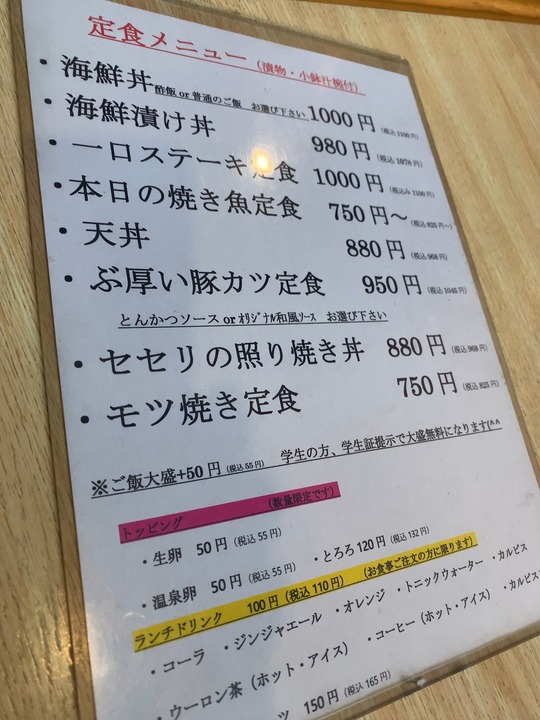 定食メニュー（漬物・小鉢汁椀付）
・海鮮丼 酢飯or普通のご飯 お選び下さい 1000円（税込1100円）
・海鮮漬け丼 980円（税込1078円）
・一口ステーキ定食 1000円（税込み1100円）
・本日の焼き魚定食 750円〜（税込825円〜）
・天丼 880円（税込968円）
・ぶ厚い豚カツ定食 950円（税込1045円）
とんかつソースorオリジナル和風ソース お選び下さい
・セセリの照り焼き丼 880円（税込968円）
・モツ焼き定食 750円（税込825円）
※ご飯大盛+50円（税込55円） 学生の方、学生証提示で大盛無料になります(^^
トッピング （数量限定です）
・生卵 50円（税込55円） ・とろろ120円（税込132円）
・温泉卵 50円（税込55円）
ランチドリンク 100円（税込110円） （お食事ご注文の方に限ります）
・コーラ ・ジンジャエール ・オレンジ ・トニックウォーター ・カルピス
・ウーロン茶（ホット・アイス） ・コーヒー（ホット・アイス） ・カルピス
150円（税込165円）